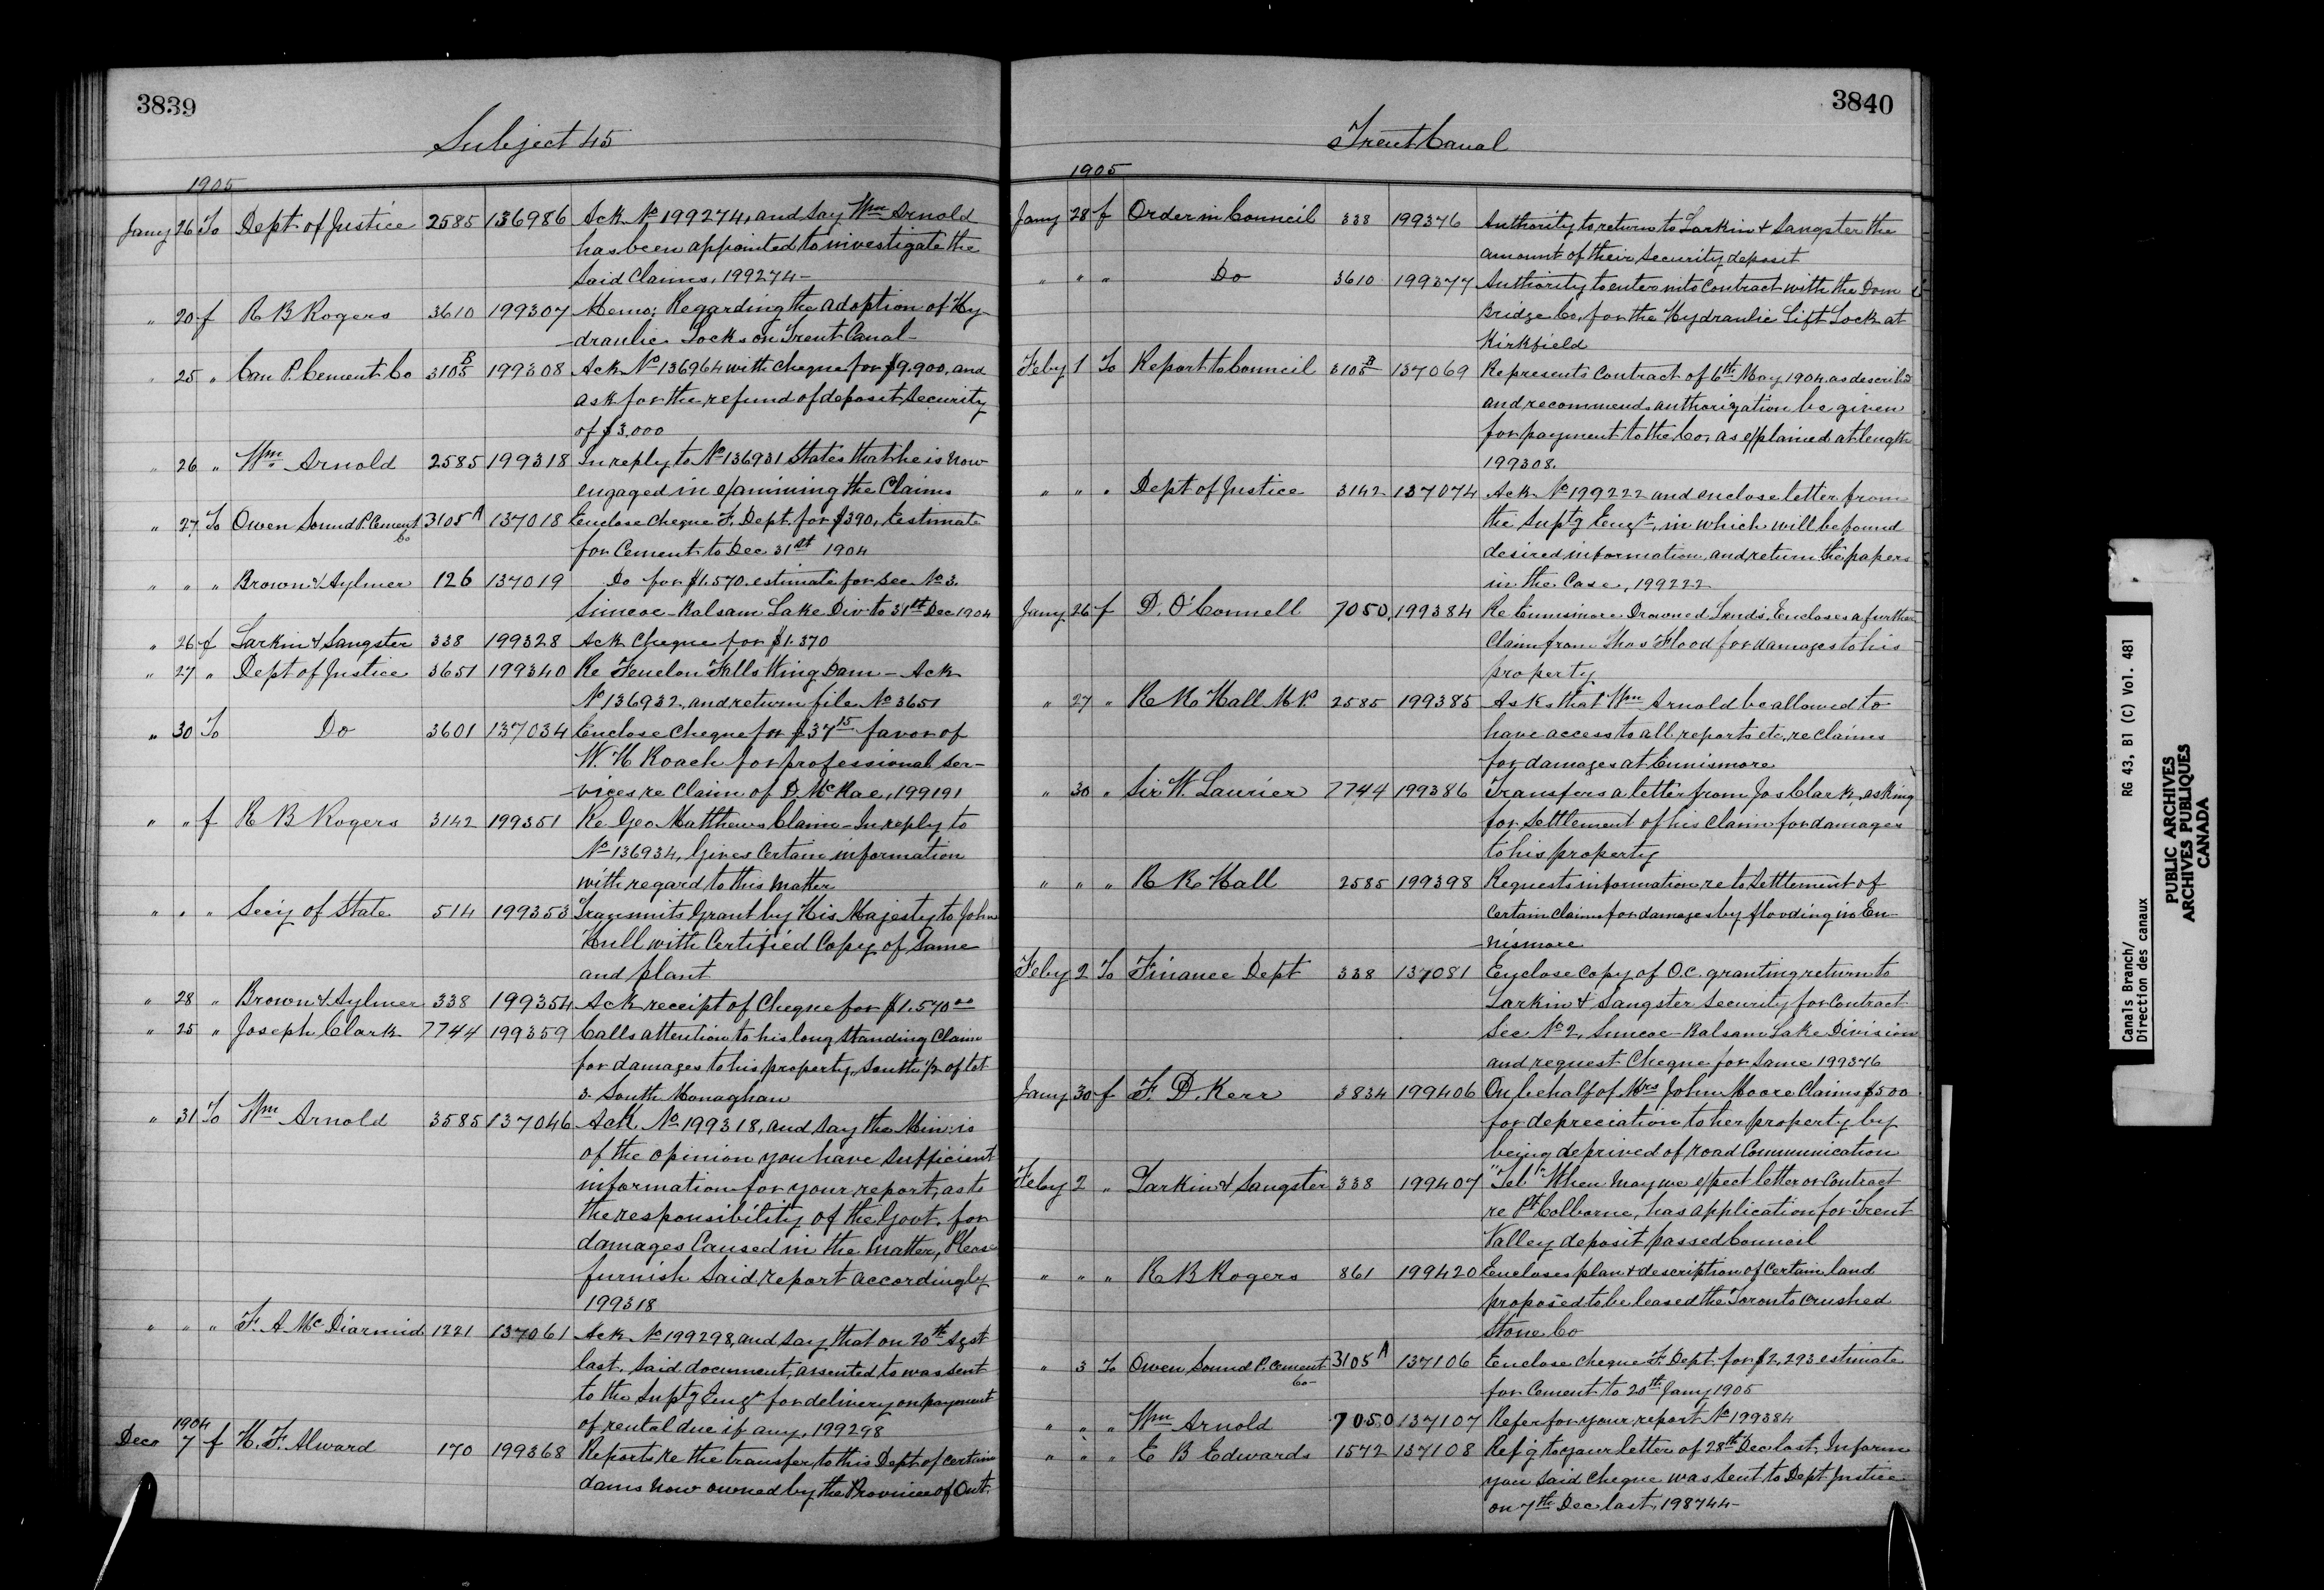 3839
Subject 45
1905
Jany 26 To Dept of Justice 2585 136986 Ack No 199274, and say Wm Arnold
has been appointed to investigate the
said Claims, 199274 –
" 20 f R B Rogers 3610 199307 Memo: Regarding the adoption of Hy-
draulic Locks on Trent Canal –
" 25 " Can P. Cement Co 3105 B 199308 Ack No 136964 with cheque for $9.900, and
ask for the refund of deposit Security
of $3.000
" 26 " Wm. Arnold 2585 199318 In reply to No 136931 States that he is now
engaged in examining the Claims
" 27 To Owen Sound P. Cement Co 3105 A 137018 Enclose cheque F. Dept. for $390, Estimate
for Cement to Dec 31st 1904
" " " Brown & Aylmer 126 137019 Do for $1.570. estimate for Sec No 3.
Simcoe – Balsam Lake Div to 31st Dec 1904
" 26 f Larkin & Sangster 338 199328 Ack Cheque for $1.370
" 27 " Dept of Justice 3651 199340 Re Fenelon Falls Wing Dam – Ack
No 136932, and return file No 3651
" 30 To Do 3601 137034 Enclose Cheque for $37 15 favor of
W. H Roach for professional ser-
vices re Claim of D. McRae, 199191
" " f R B Rogers 3142 199351 Re Geo Matthews Claim – In reply to
No 136934, Gives Certain information
with regard to this matter
" " " Secy of State 514 199353 Transmits Grant by His Majesty to John
Hull with Certified Copy of Same
and plant
" 28 " Brown & Aylmer 338 199354 Ack receipt of Cheque for $1.570 00
" 25 " Joseph Clark 7744 199359 Calls attention to his long standing Claim
for damages to his property, South 1/2 of lot
3. South Monaghan
" 31 To Wm Arnold 3585 137046 Ack No 199318, and say the Min: is
of the opinion you have sufficient
information for your report, as to
the responsibility of the Govt. for
damages Caused in the matter, Please
furnish said report accordingly
199318
" " " F. A McDiarmid 1221 137061 Ack No 199298, and say that on 20th Agst
last. said document, assented to was sent
to the Suptg Engr for delivery on payment
of rental due if any, 199298
1904
Dec 7 f H. F. Alward 170 199368 Reports re the transfer to this Dept of certain
dams now owned by the Province of Ont.
3840
Trent Canal
1905
Jany 28 f Order in Council 338 199376 Authority to return to Larkin & Sangster the
amount of their Security deposit
" " " Do 3610 199377 Authority to enter into Contract with the Dom
Bridge Co, for the Hydraulic Lift Lock at
Kirkfield
Feby 1 To Report to Council 3105 B 137069 Represents Contract of 6th May 1904 as described
and recommends authorization be given
for payment to the Co, as explained at length
199308.
" " " Dept of Justice 3142 137074 Ack No 199222 and enclose letter from
the Suptg Engr, in which will be found
desired information, and return the papers
in the Case, 199222
Jany 26 f D. O'Connell 7050, 199384 Re Ennismore Drowned Lands, Encloses a further
Claim from Thos Flood for damages to his
property
" 27 " R R Hall M.P. 2585 199385 Asks that Wm Arnold be allowed to
have access to all reports etc, re Claims
for damages at Ennismore
" 30 " Sir W. Laurier 7744 199386 Transfers a letter from Jos Clark, asking
for Settlement of his Claim for damages
to his property
" " " R R Hall 2585 199398 Requests information re to Settlement of
Certain Claims for damages by flooding in En-
nismore
Feby 2 To Finance Dept 338 137081 Enclose copy of O.C. granting return to
Larkin & Sangster Security for Contract
Sec No 2, Simcoe – Balsam Lake Division
and request Cheque for Same 199376
Jany 30 f F. D. Kerr 3834 199406 On behalf of Mrs John Moore Claims $500
for depreciation to her property by
being deprived of road Communication
Feby 2 " Larkin & Sangster 338 199407 "Tel" When may we expect letter or Contract
re Pt Colborne, has application for Trent
Valley deposit passed Council
" " " R B Rogers 861 199420 Encloses plan & description of Certain land
proposed to be leased the Toronto Crushed
Stone Co
" 3 To Owen Sound P. Cement Co 3105 A 137106 Enclose cheque F. Dept. for $2,293 estimate
for Cement to 20th Jany 1905
" " " Wm Arnold 7050 137107 Refer for your report No 199384
" " " E B Edwards 1572 137108 Refg to your letter of 28th Dec last, Inform
you said cheque was sent to Dept Justice
on 7th Dec last, 198744 –
Canals Branch/
Direction des canaux
RG 43, B1 (C) Vol. 481
PUBLIC ARCHIVES
ARCHIVES PUBLIQUES
CANADA